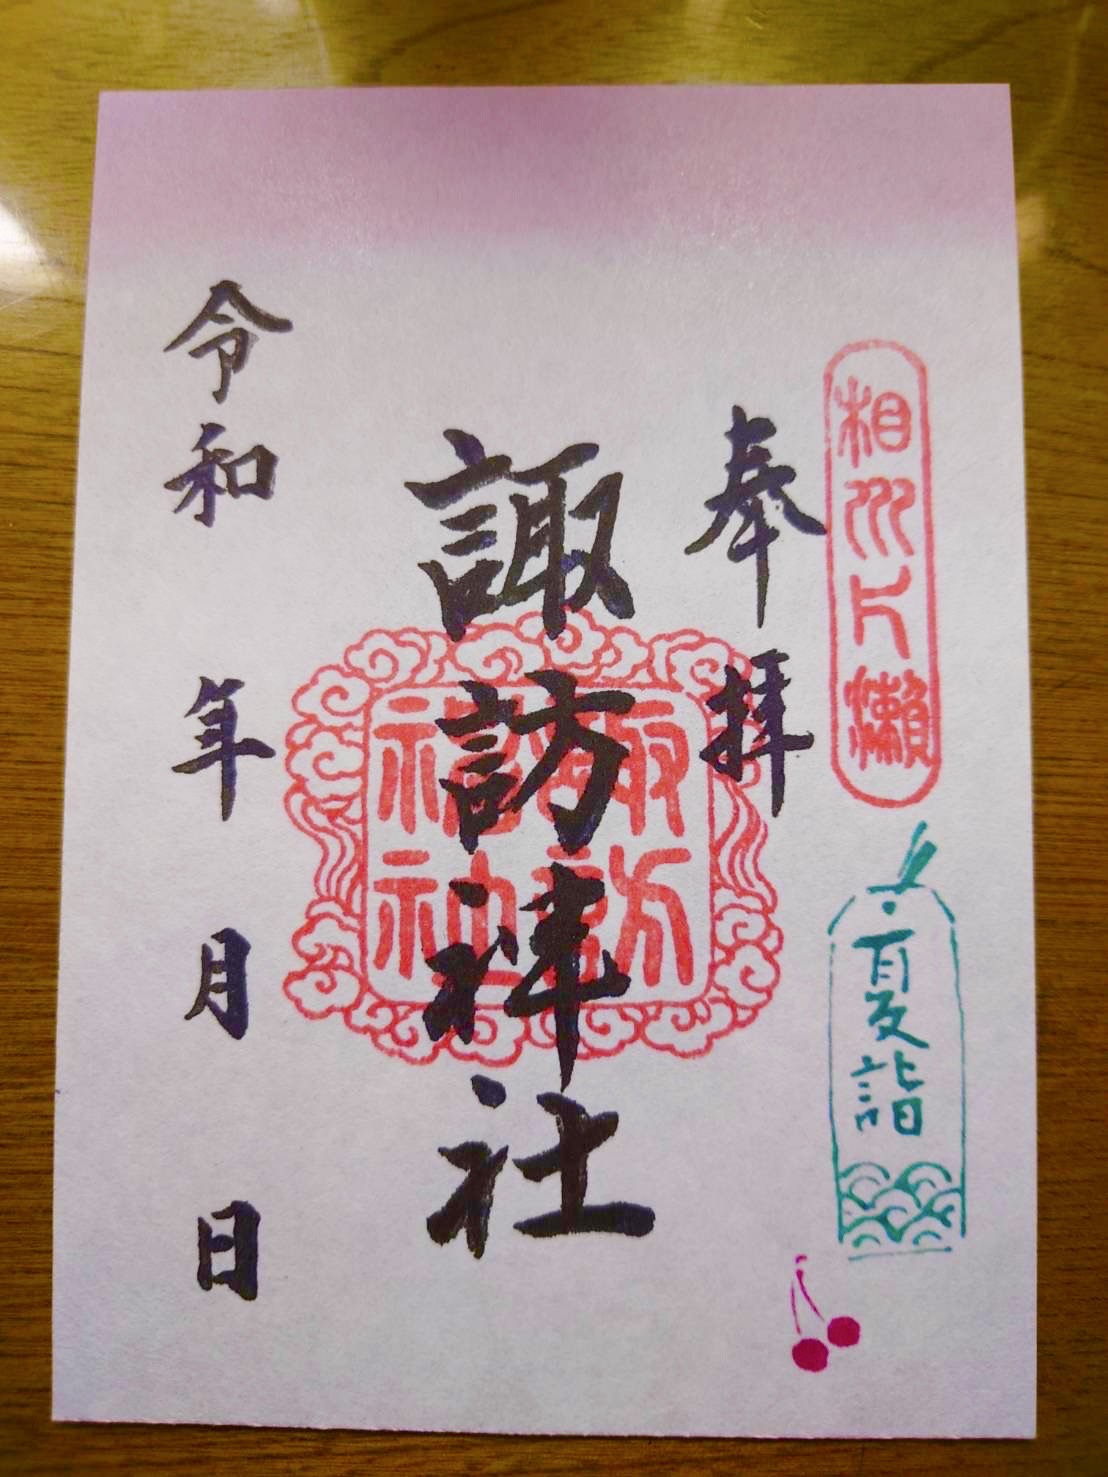 相州片瀬
夏詣
奉拝
諏訪神社
諏訪神社
令和 年 月 日